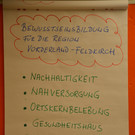 BEWUSSTSEINSBILDUNG
FÜR DIE REGION
VORDERLAND-FELDKIRCH
• NACHHALTIGKEIT
• NAHVERSORGUNG
• ORTSKERNBELEBUNG
• GESUNDHEITSHAUS